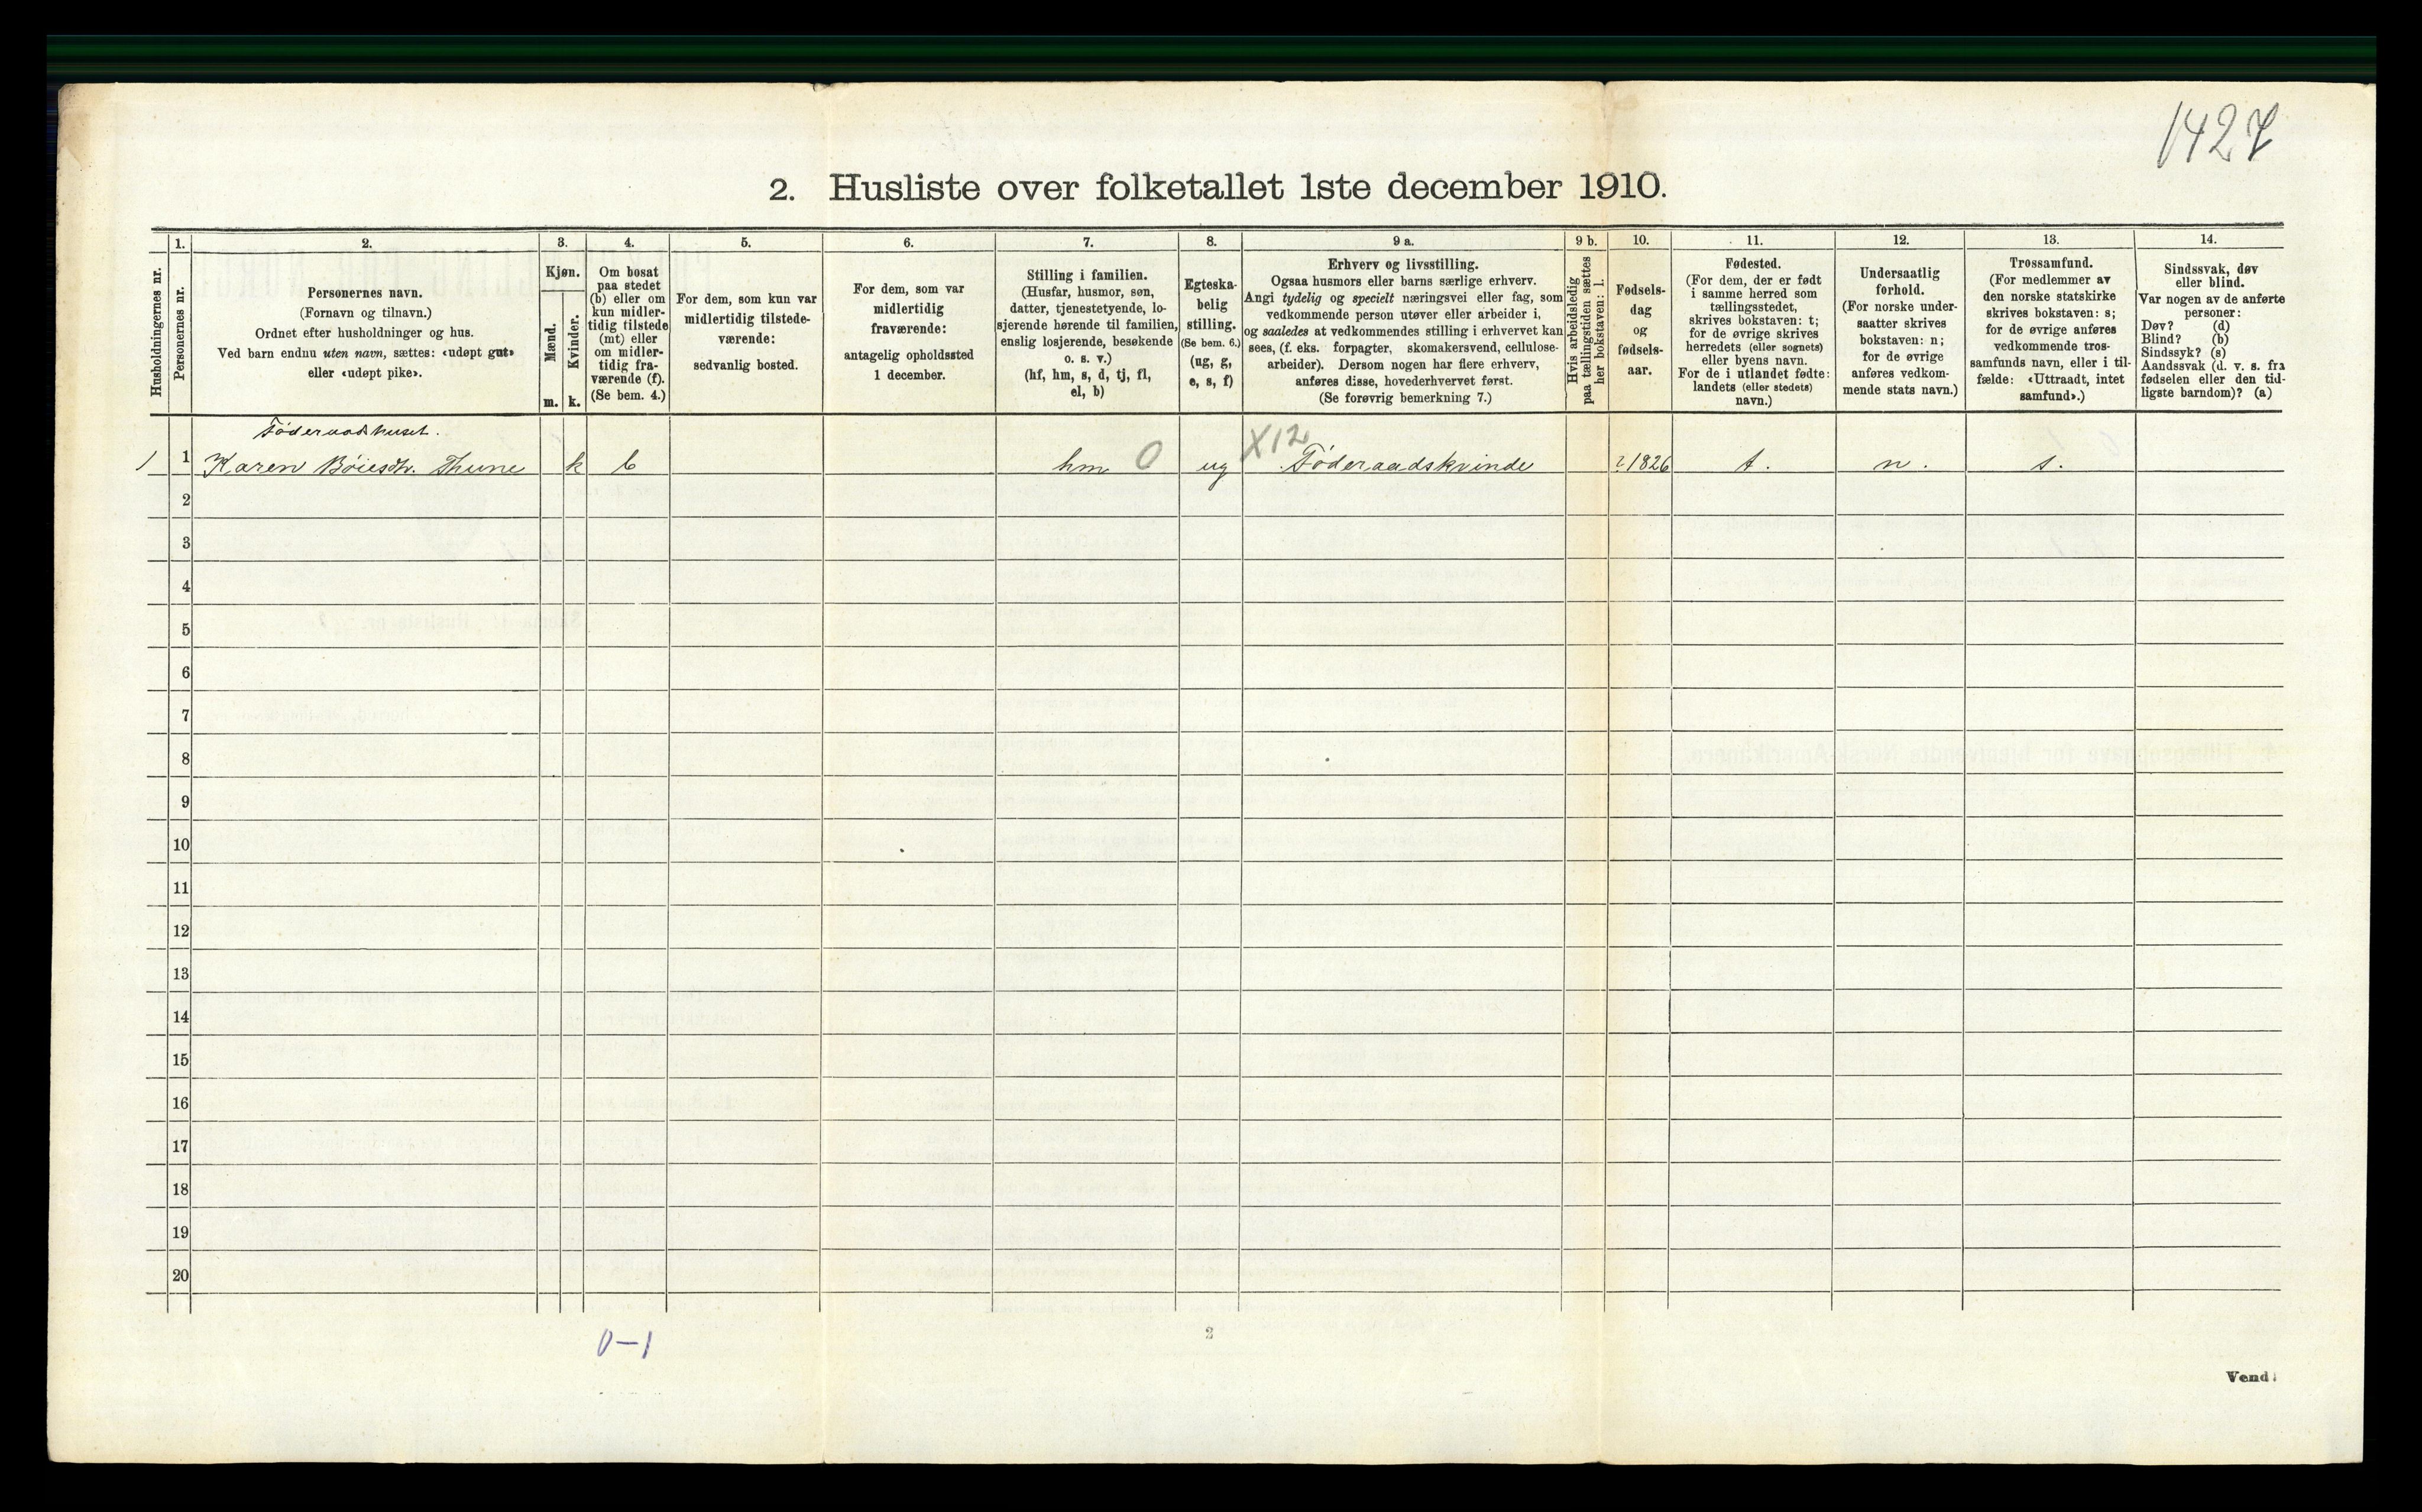 1427
2. Husliste over folketallet 1ste december 1910.
Husholdningernes nr.
1.
Personernes nr.
2.
Personernes navn.
(Fornavn og tilnavn.)
Ordnet efter husholdninger og hus.
Ved barn endnu uten navn, sættes: «udøpt gut»
eller «udøpt pike».
3.
Kjøn.
Mænd.
m.
Kvinder.
k.
4.
Om bosat
paa stedet
(b) eller om
kun midler-
tidig tilstede
(mt) eller
om midler-
tidig fra-
værende (f).
(Se bem. 4.)
5.
For dem, som kun var
midlertidig tilstede-
værende:
sedvanlig bosted.
6.
For dem, som var
midlertidig
fraværende:
antagelig opholdssted
1 december.
7.
Stilling i familien.
(Husfar, husmor, søn,
datter, tjenestetyende, lo-
sjerende hørende til familien,
enslig losjerende, besøkende
o. s. v.)
(hf, hm, s, d, tj, fl,
el, b)
8.
Egteska-
belig
stilling.
(Se bem. 6.)
(ug, g,
e, s, f)
9 a.
Erhverv og livsstilling.
Ogsaa husmors eller barns særlige erhverv.
Angi tydelig og specielt næringsvei eller fag, som
vedkommende person utøver eller arbeider i,
og saaledes at vedkommendes stilling i erhvervet kan
sees, (f. eks. forpagter, skomakersvend, cellulose-
arbeider). Dersom nogen har flere erhverv,
anføres disse, hovederhvervet først.
(Se forøvrig bemerkning 7.)
9 b.
Hvis arbeidsledig
paa tællingstiden sættes
her bokstaven: l.
10.
Fødsels-
dag
og
fødsels-
aar.
11.
Fødested.
(For dem, der er født
i samme herred som
tællingsstedet,
skrives bokstaven: t;
for de øvrige skrives
herredets (eller sognets)
eller byens navn.
For de i utlandet fødte:
landets (eller stedets)
navn.)
12.
Undersaatlig
forhold.
(For norske under-
saatter skrives
bokstaven: n;
for de øvrige
anføres vedkom-
mende stats navn.)
13.
Trossamfund.
(For medlemmer av
den norske statskirke
skrives bokstaven: s;
for de øvrige anføres
vedkommende tros-
samfunds navn, eller i til-
fælde: «Uttraadt, intet
samfund».)
14.
Sindssvak, døv
eller blind.
Var nogen av de anførte
personer:
Døv? (d)
Blind? (b)
Sindssyk? (s)
Aandssvak (d. v. s. fra
fødselen eller den tid-
ligste barndom)? (a)
Føderaadshuset.
1 1 Karen Bøiesdtr. Thune k b hm 0 ug X12 Føderaadskvinde ? 1826 t. n. s.
2
3
4
5
6
7
8
9
10
11
12
13
14
15
16
17
18
19
20
0-1
2
Vend!